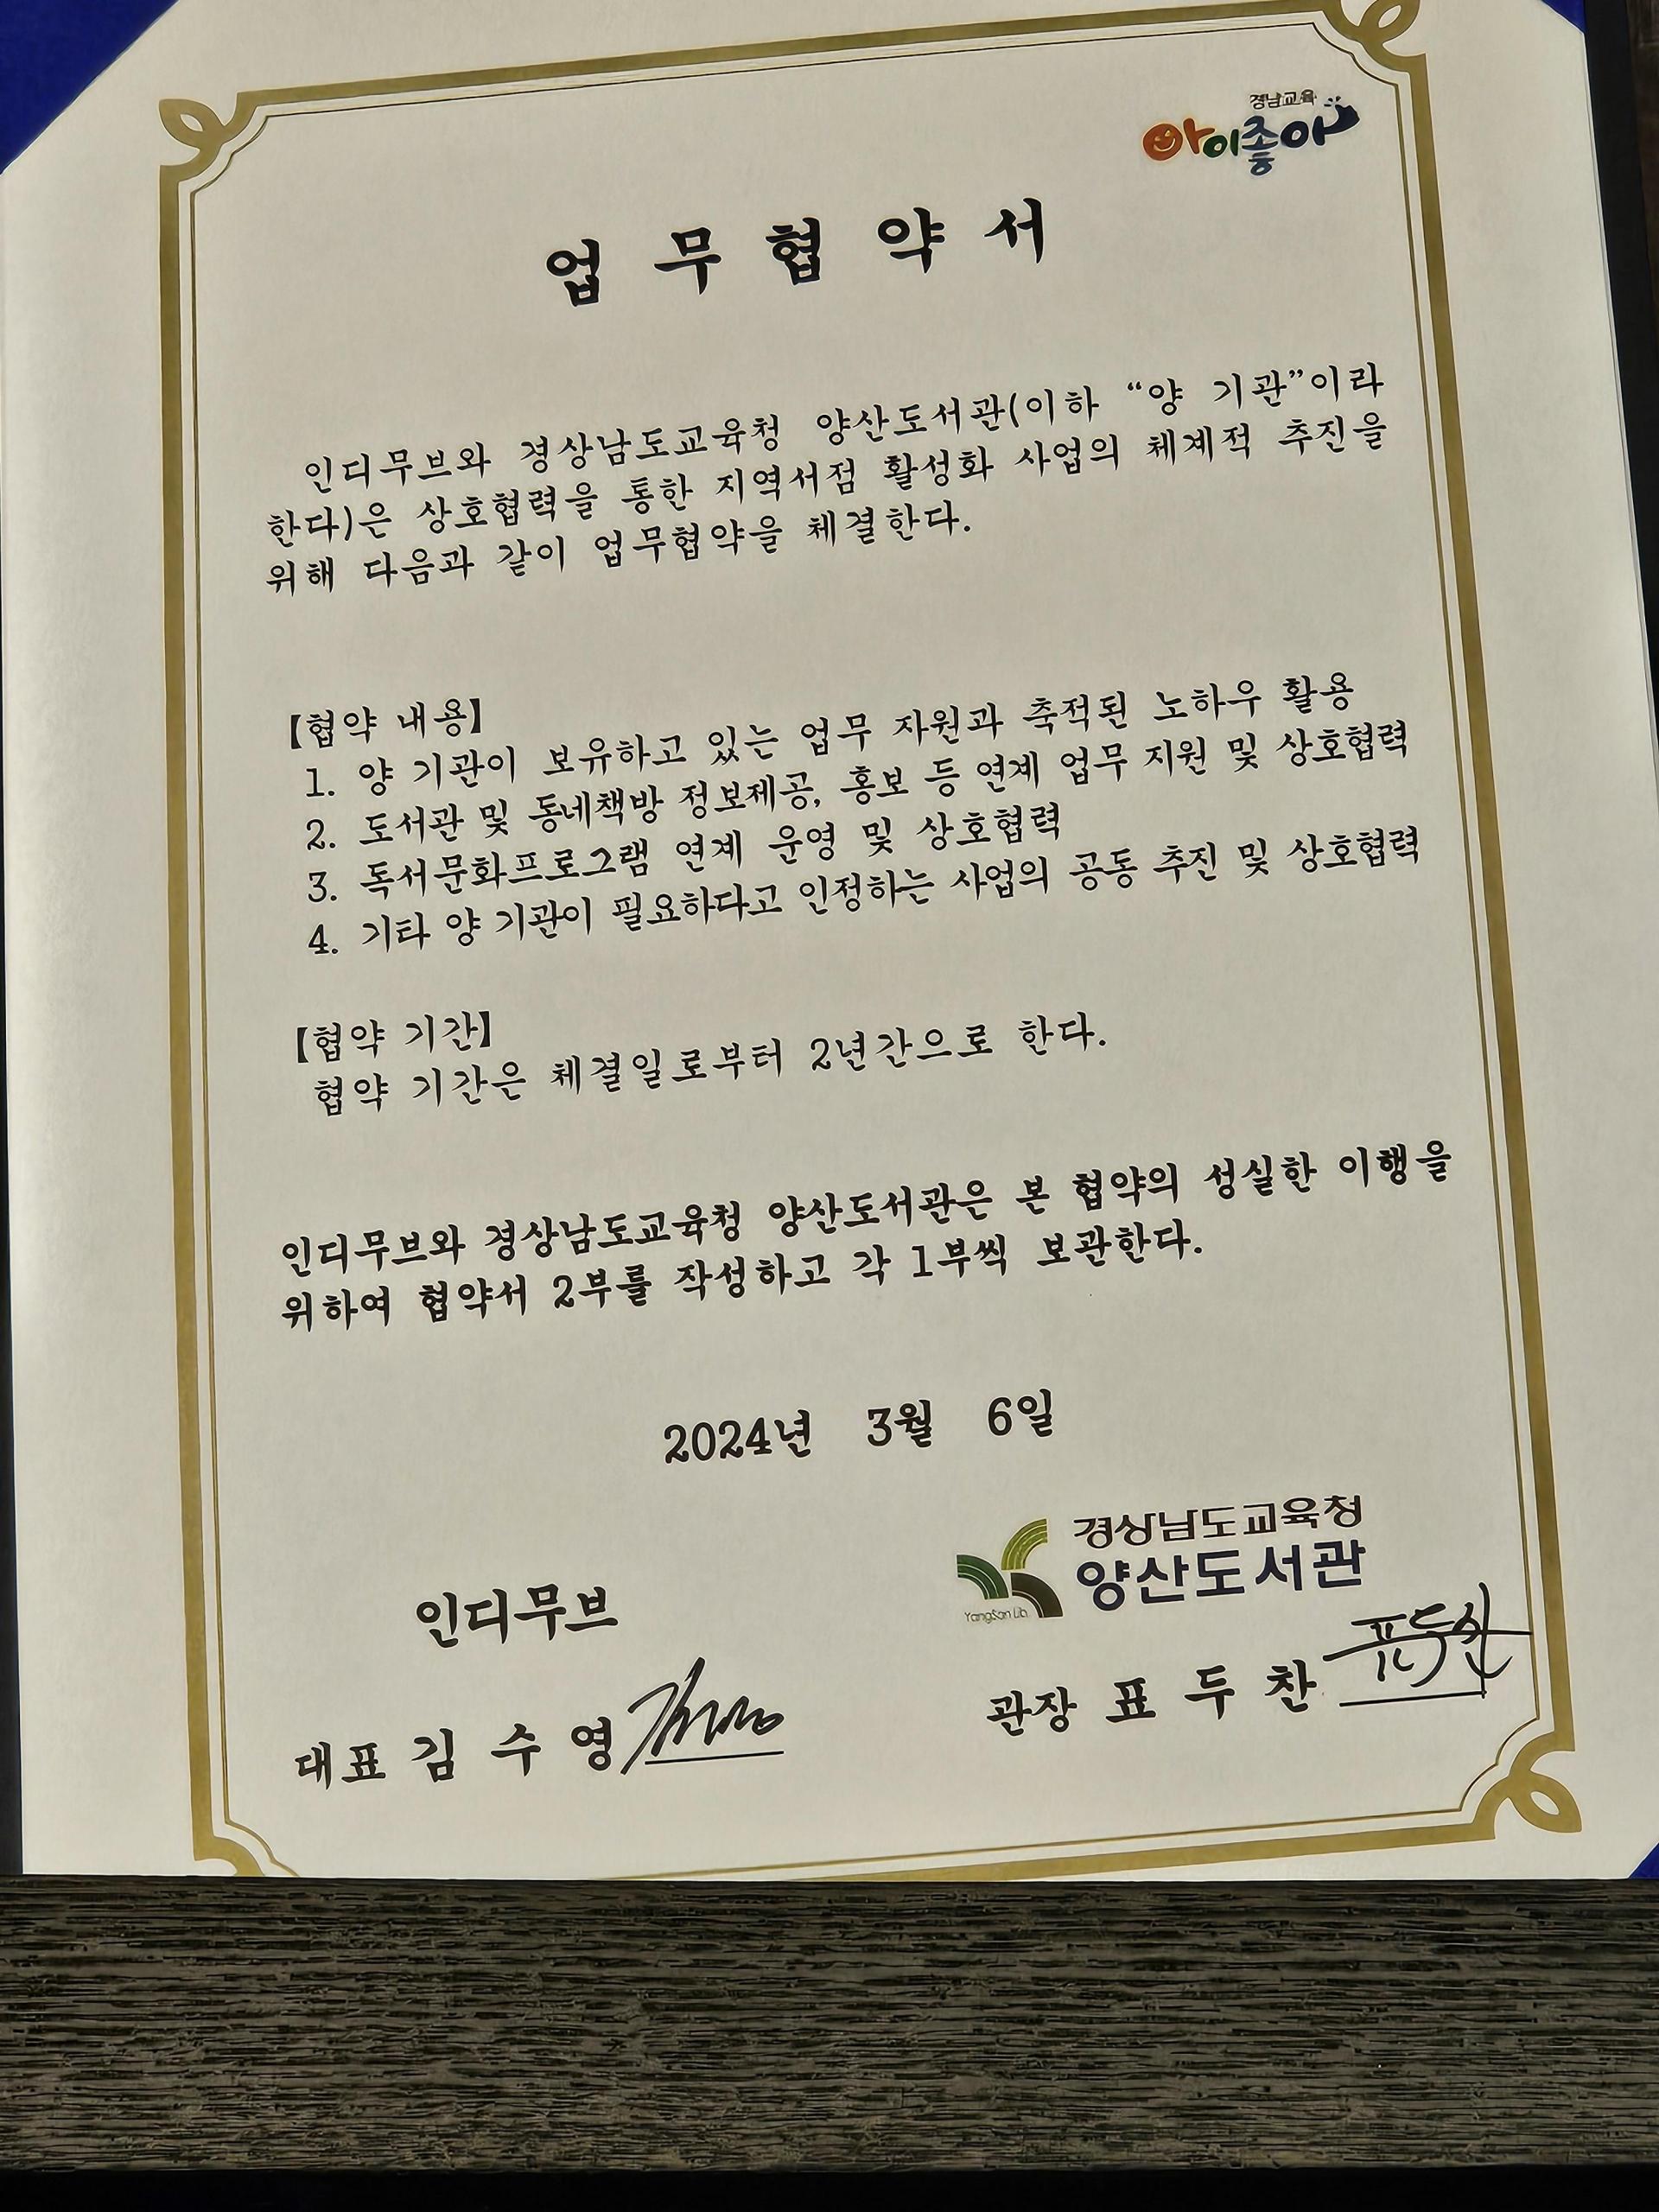 경남교육
아이좋아
업무협약서
인디무브와 경상남도교육청 양산도서관(이하 “양 기관”이라
한다)은 상호협력을 통한 지역서점 활성화 사업의 체계적 추진을
위해 다음과 같이 업무협약을 체결한다.
【협약 내용】
1. 양 기관이 보유하고 있는 업무 자원과 축적된 노하우 활용
2. 도서관 및 동네책방 정보제공, 홍보 등 연계 업무 지원 및 상호협력
3. 독서문화프로그램 연계 운영 및 상호협력
4. 기타 양 기관이 필요하다고 인정하는 사업의 공동 추진 및 상호협력
【협약 기간】
협약 기간은 체결일로부터 2년간으로 한다.
인디무브와 경상남도교육청 양산도서관은 본 협약의 성실한 이행을
위하여 협약서 2부를 작성하고 각 1부씩 보관한다.
2024년 3월 6일
인디무브
대표 김 수 영
경상남도교육청
양산도서관
YangSan Lib
관장 표 두 찬